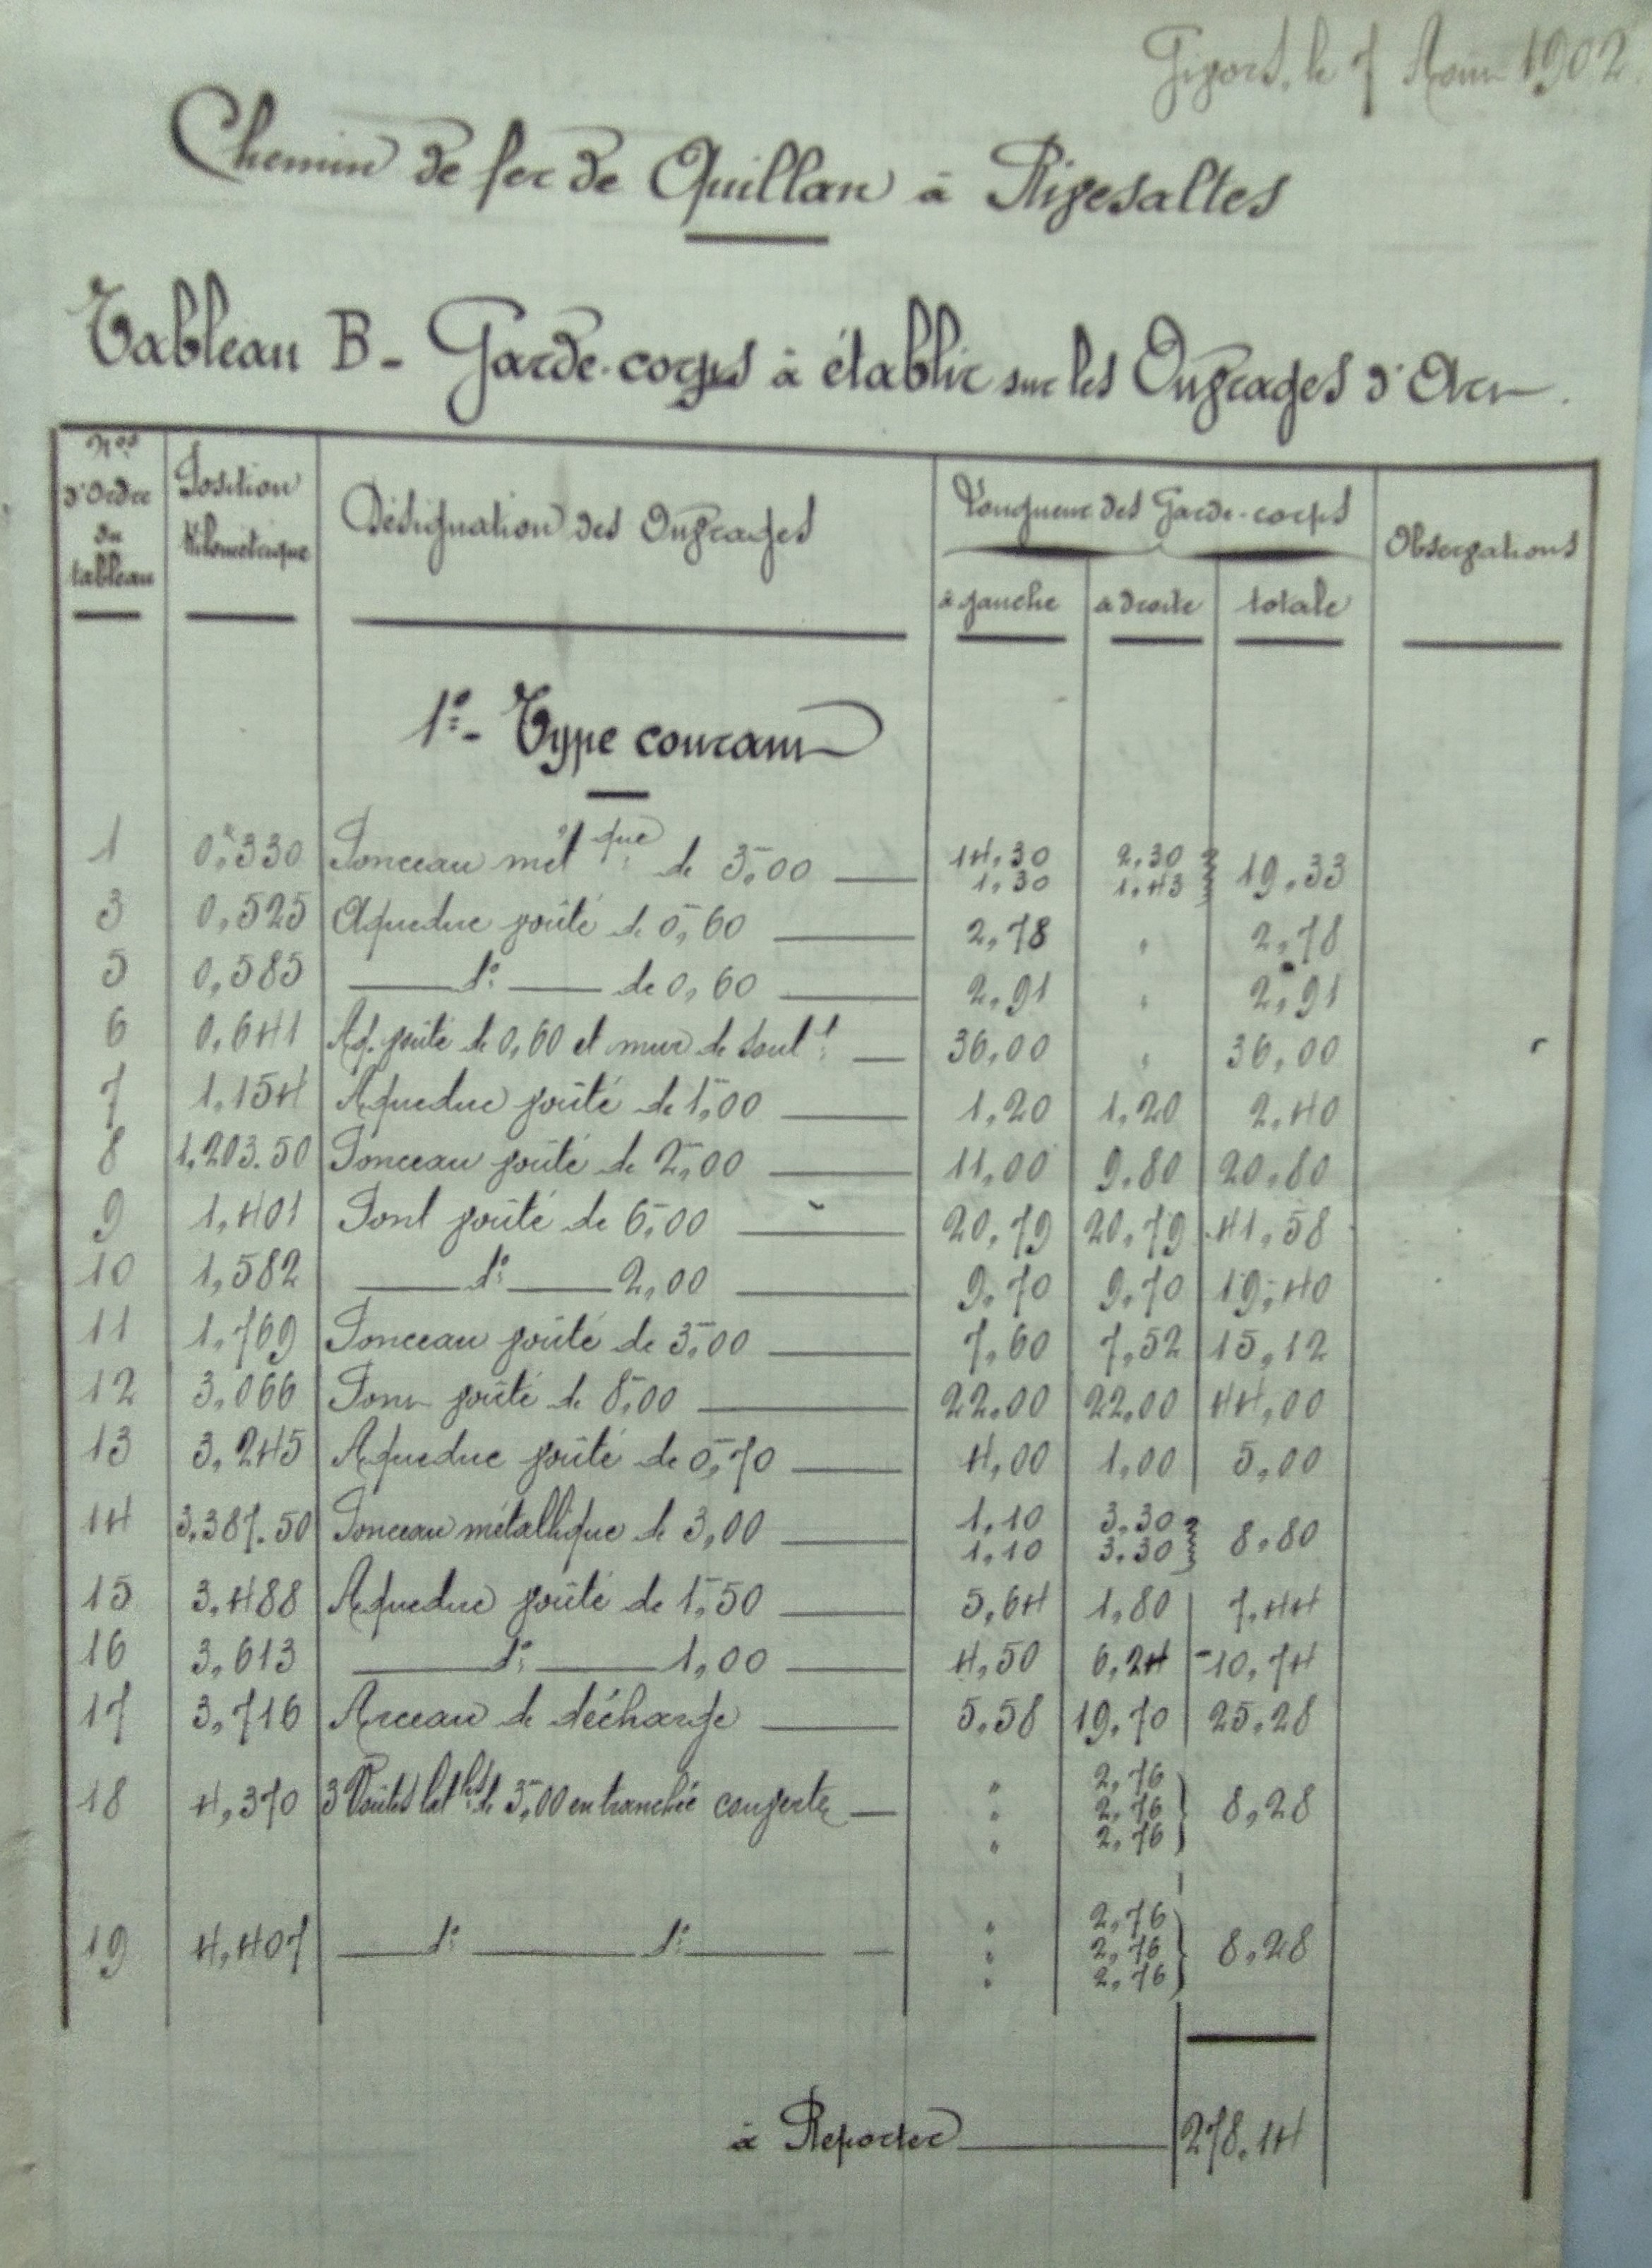 Gisors, le 7 Août 1902
Chemin de fer de Quillan à Rivesaltes
Tableau B - Garde-corps à établir sur les Ouvrages d'Art.
Nos d'Ordre du tableau
Position Kilométrique
Désignation des Ouvrages
Longueur des Garde-corps
à gauche à droite totale
Observations
1° - Type courant
1 0k330 Ponceau métque de 3,00 14,30 2,30 19,33
1,30 1,43
3 0,525 Aqueduc voûté de 0,60 2,78 " 2,78
5 0,585 d° de 0,60 2,91 " 2,91
6 0,641 Aq. voûté de 0,60 et mur de soutt 36,00 " 36,00
7 1,154 Aqueduc voûté de 1,00 1,20 1,20 2,40
8 1,203.50 Ponceau voûté de 2,00 11,00 9,80 20,80
9 1,401 Pont voûté de 6,00 20,79 20,79 41,58
10 1,582 d° 2,00 9,70 9,70 19,40
11 1,769 Ponceau voûté de 3,00 7,60 7,52 15,12
12 3,066 Pont voûté de 8,00 22,00 22,00 44,00
13 3,245 Aqueduc voûté de 0,70 4,00 1,00 5,00
14 3,387.50 Ponceau métallique de 3,00 1,10 3,30 8,80
1,10 3,30
15 3,488 Aqueduc voûté de 1,50 5,64 1,80 7,44
16 3,613 d° 1,00 4,50 6,24 10,74
17 3,716 Arceau de décharge 5,58 19,70 25,28
18 4,370 3 Voûtes latles de 3,00 en tranchée couverte " 2,76 8,28
" 2,76
" 2,76
19 4,407 d° d° " 2,76 8,28
" 2,76
" 2,76
à Reporter 278,14